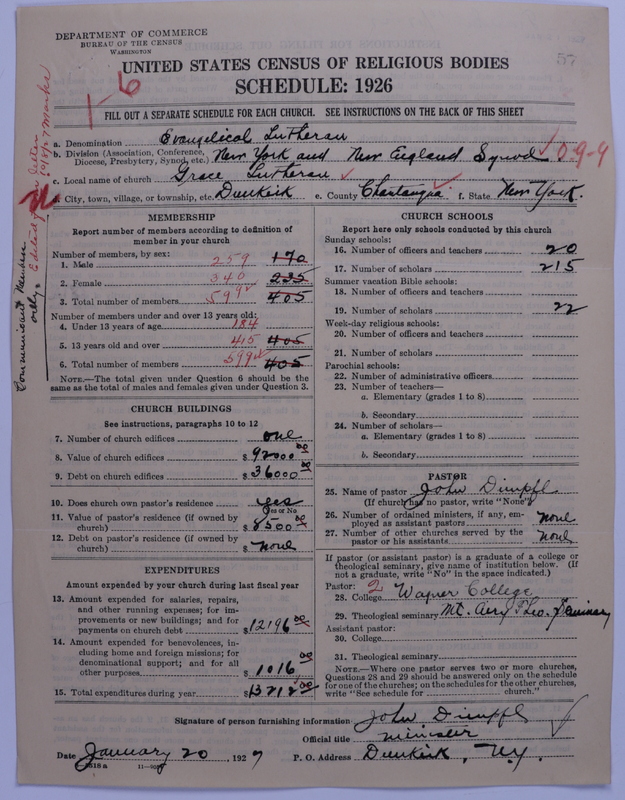 DEPARTMENT OF COMMERCE
BUREAU OF THE CENSUS
WASHINGTON
57
UNITED STATES CENSUS OF RELIGIOUS BODIES
SCHEDULE: 1926
1-6
FILL OUT A SEPARATE SCHEDULE FOR EACH CHURCH. SEE INSTRUCTIONS ON THE BACK OF THIS SHEET
a. Denomination Evangelical Lutheran
b. Division (Association, Conference, Diocese, Presbytery, Synod, etc.) New York and New England Synod 09-9
c. Local name of church Grace Lutheran
d. City, town, village, or township, etc. Dunkirk e. County Chautauqua f. State New York.
Communicant Members only.
Edited per letter
MEMBERSHIP
Report number of members according to definition of member in your church
Number of members, by sex:
1. Male 259 170
2. Female 340 235
3. Total number of members 599 405
Number of members under and over 13 years old:
4. Under 13 years of age 184
5. 13 years old and over 415 405
6. Total number of members 599 405
NOTE.—The total given under Question 6 should be the same as the total of males and females given under Question 3.
CHURCH BUILDINGS
See instructions, paragraphs 10 to 12
7. Number of church edifices one
8. Value of church edifices $ 92000 00
9. Debt on church edifices $ 36000 00
10. Does church own pastor's residence yes
Yes or No
11. Value of pastor's residence (if owned by church) $ 8500 00
12. Debt on pastor's residence (if owned by church) $ None
EXPENDITURES
Amount expended by your church during last fiscal year
13. Amount expended for salaries, repairs, and other running expenses; for improvements or new buildings; and for payments on church debt $ 12196 00
14. Amount expended for benevolences, including home and foreign missions; for denominational support; and for all other purposes $ 1016 00
15. Total expenditures during year $ 13212 00
CHURCH SCHOOLS
Report here only schools conducted by this church
Sunday schools:
16. Number of officers and teachers 20
17. Number of scholars 215
Summer vacation Bible schools:
18. Number of officers and teachers
19. Number of scholars 22
Week-day religious schools:
20. Number of officers and teachers
21. Number of scholars
Parochial schools:
22. Number of administrative officers
23. Number of teachers—
a. Elementary (grades 1 to 8)
b. Secondary
24. Number of scholars—
a. Elementary (grades 1 to 8)
b. Secondary
PASTOR
25. Name of pastor John Dimpfl
(If church has no pastor, write "None")
26. Number of ordained ministers, if any, employed as assistant pastors None
27. Number of other churches served by the pastor or his assistants None
If pastor (or assistant pastor) is a graduate of a college or theological seminary, give name of institution below. (If not a graduate, write "No" in the space indicated.)
Pastor: 2
28. College Wagner College
29. Theological seminary Mt. Airy Theo. Seminary
Assistant pastor:
30. College
31. Theological seminary
NOTE.—Where one pastor serves two or more churches, Questions 28 and 29 should be answered only on the schedule for one of the churches; on the schedules for the other churches, write "See schedule for church."
Signature of person furnishing information John Dimpfl
Official title minister
Date January 20, 1927 P. O. Address Dunkirk, N.Y.